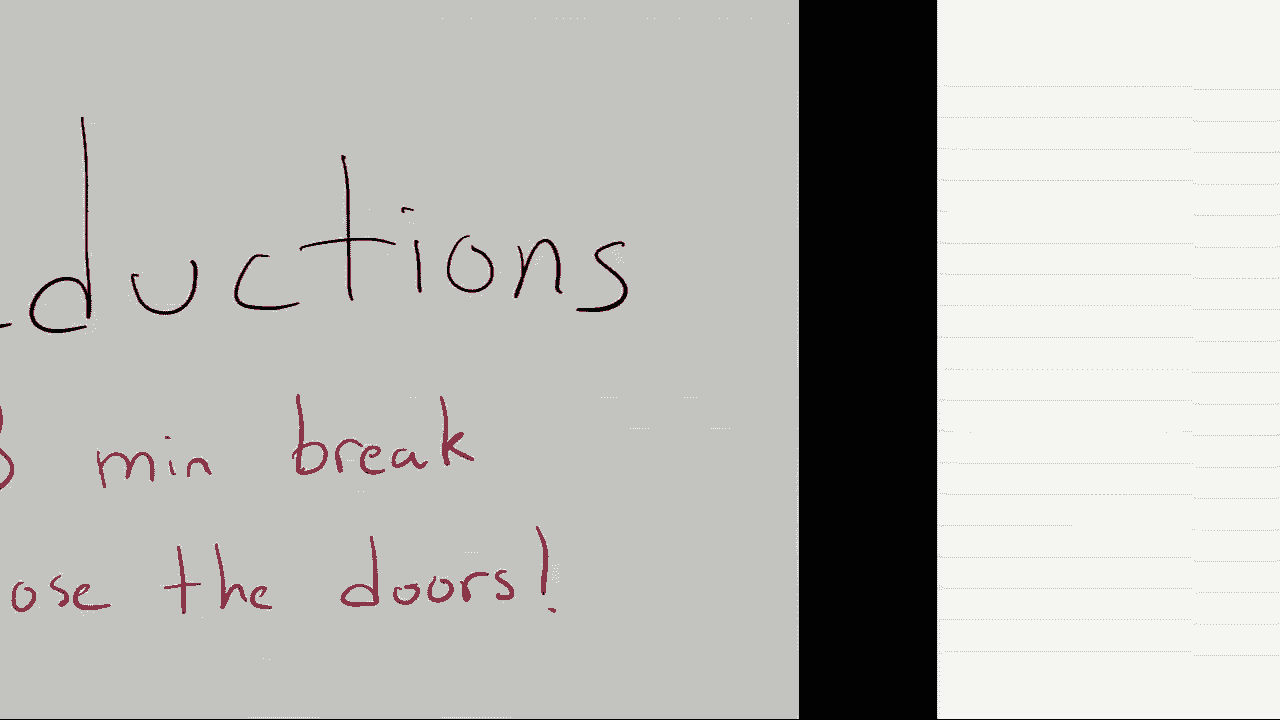 ductions
min break
ose the doors!